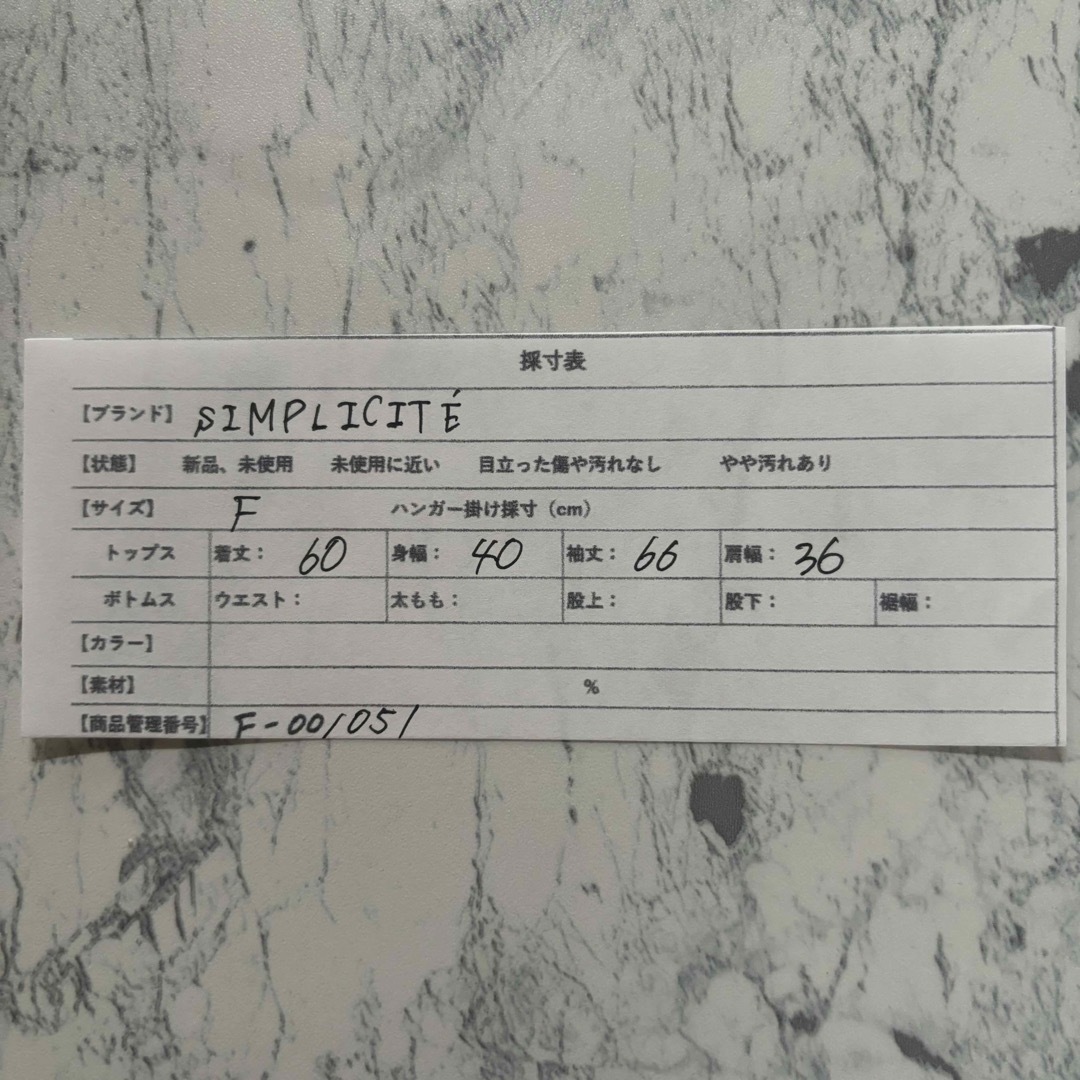 採寸表
【ブランド】 SIMPLICITÉ
【状態】 新品、未使用 未使用に近い 目立った傷や汚れなし やや汚れあり
【サイズ】 F ハンガー掛け採寸（cm）
トップス 着丈： 60 身幅： 40 袖丈： 66 肩幅： 36
ボトムス ウエスト： 太もも： 股上： 股下： 裾幅：
【カラー】
【素材】 %
【商品管理番号】 F-001051